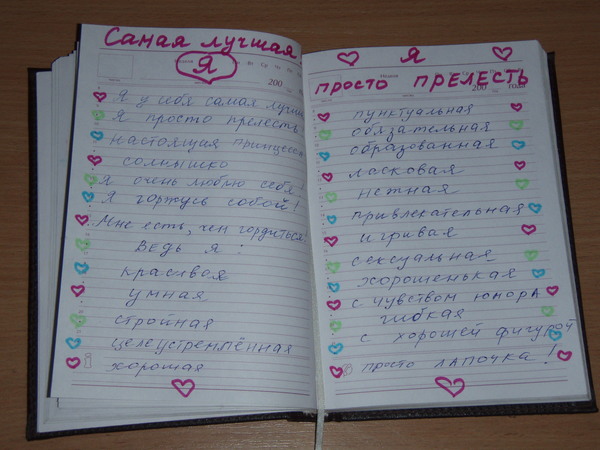 Самая лучшая
Я
200
Я у себя самая лучшая
Я просто прелесть
настоящая принцесса
солнышко
Я очень люблю себя!
Я горжусь собой!
Мне есть, чем гордиться!
Ведь я:
красивая
умная
стройная
целеустремлённая
хорошая
Я
просто ПРЕЛЕСТЬ
200 года
пунктуальная
обязательная
образованная
ласковая
нежная
привлекательная
игривая
сексуальная
хорошенькая
с чувством юмора
гибкая
с хорошей фигурой
просто ЛАПОЧКА!